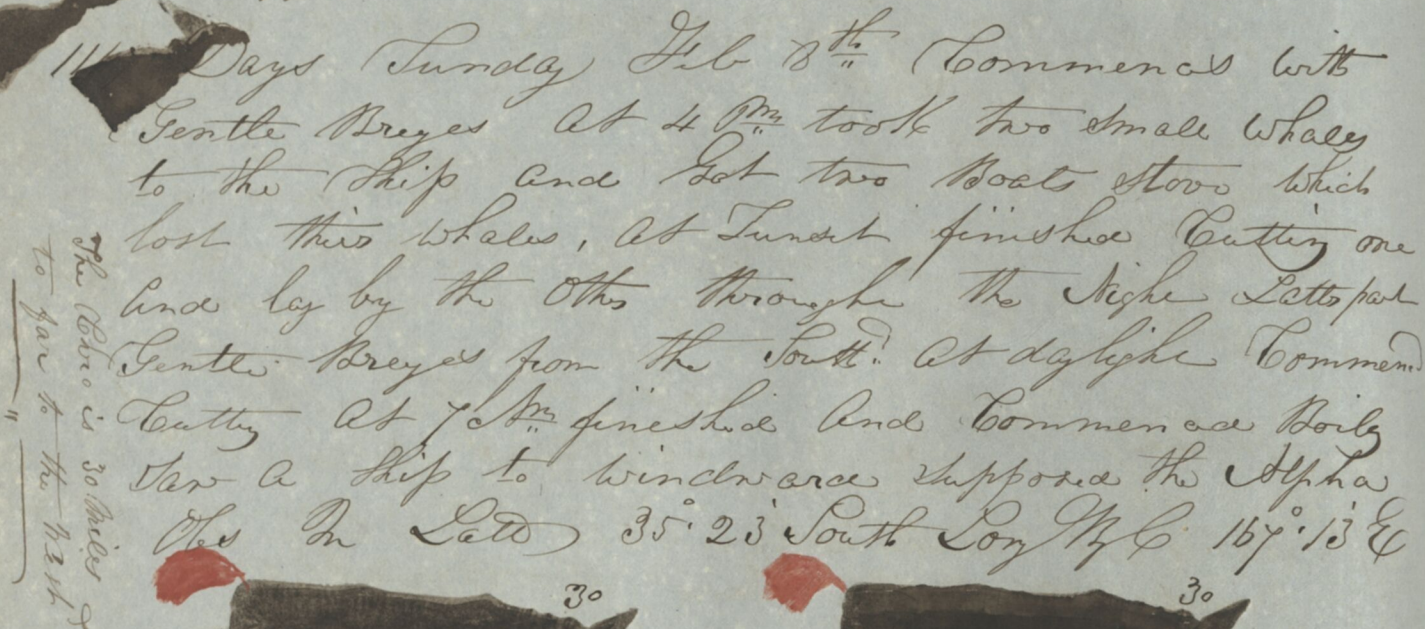 Days Sunday Feb 8th Commences with
Gentle Brezes At 4 Pm took two small whales
to the Ship and Got two Boats stove which
lost thier whales, At Sunset finished Cutting one
And lay by the Other throughe the Nighe Latter part
Gentle Brezes from the Southd At daylighe Commend
Cutting At 7 Am finished And Commenced Boilg
Saw A Ship to windward supposed the Alpha
Obs In Latd 35°.23' South Long By C 167°.13' E
30 30
The Chro is 30 Miles
to far to the